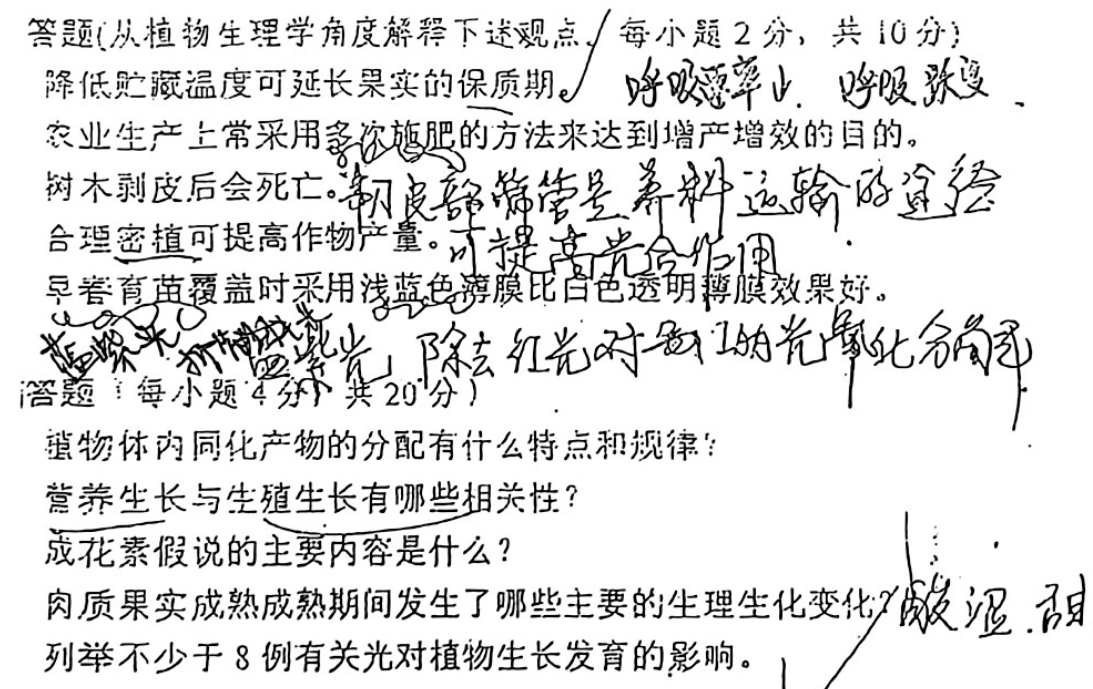 答题(从植物生理学角度解释下述观点,每小题2分,共10分)
降低贮藏温度可延长果实的保质期。 呼吸 率 呼吸跃变
农业生产上常采用多次施肥的方法来达到增产增效的目的。
树木剥皮后会死亡。韧皮部筛管是养料运输的途径
合理密植可提高作物产量。可提高光合作用
早春育苗覆盖时采用浅蓝色薄膜比白色透明薄膜效果好。
蓝紫光,除去红光对 的光氧化分解
答题(每小题4分,共20分)
植物体内同化产物的分配有什么特点和规律?
营养生长与生殖生长有哪些相关性?
成花素假说的主要内容是什么?
肉质果实成熟成熟期间发生了哪些主要的生理生化变化? 酸涩.甜
列举不少于8例有关光对植物生长发育的影响。